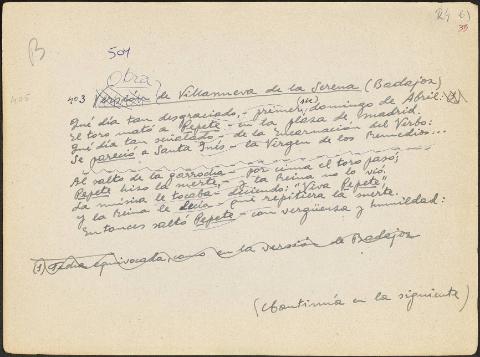 B
504
R4 61
38
405
Otra
403 Versión de Villanueva de la Serena (Badajoz)
Qué día tan desgraciado, - primer (sic) domingo de Abril: (1)
El toro mató a Pepete - en la plaza de Madrid.
Qué día tan señalado - de la Encarnación del Verbo:
Se pareció a Santa Inés - la Virgen de los Remedios...
Al salto de la garrocha - por cima el toro pasó;
Pepete hizo la muerte, - y la Reina no lo vió.
La música le tocaba - diciendo: "Viva Pepete",
y la Reina le decía - que repitiera la suerte.
Entonces saltó Pepete - con vergüenza y humildad:
(1) Fecha equivocada, como en la versión de Badajoz
(Continúa en la siguiente)